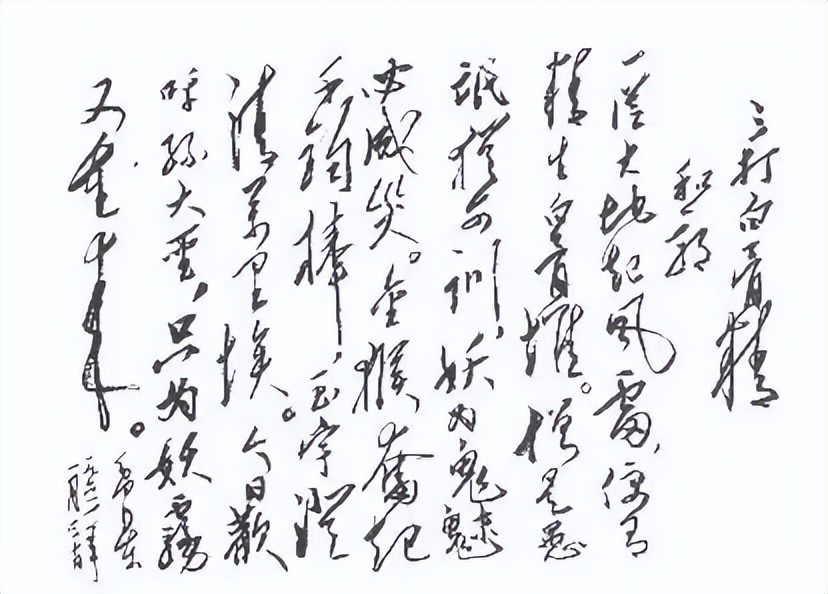 三打白骨精
和郭
一從大地起风雷,便有
精生白骨堆。僧是愚
氓猶可训,妖为鬼魅
必成災。金猴奮起
千鈞棒,玉宇澄
清万里埃。今日歡
呼孫大圣,只为妖霧
又重来。
毛泽东